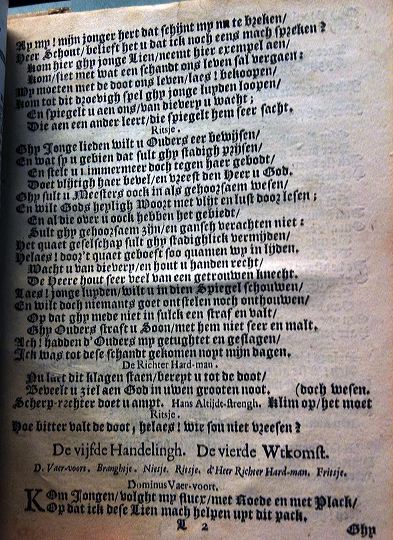 Ay my! mijn jonger hert dat schijnt my nu te breken/
Heer Schout/ belieft het u dat ick noch eens mach spreken?
Kom hier ghy jonge Lien/ neemt hier exempel aen/
Kom/ siet met wat een schandt ons leven sal vergaen:
Wy moeten met de doot ons leven/ laes! bekoopen/
Kom tot dit droevigh spel ghy jonge luyden loopen/
En spiegelt u aen ons/ van dievery u wacht;
Die aen een ander leert/ die spiegelt hem seer sacht.
Ritsje.
Ghy Jonge lieden wilt u Ouders eer bewijsen/
En wat sp u gebien dat sult ghy stadigh prijsen/
En stelt u immermeer doch tegen haer gebodt/
Doet vlijtigh haer bevel/ en vreest den Heer u God.
Ghy sult u Meesters oock in als gehoorsaem wesen/
En wilt Gods heyligh Woort met vlijt en lust door lesen;
En al die over u oock hebben het gebiedt/
Sult ghy gehoorsaem zijn/ en gansch verachten niet:
Het quaet geselschap sult ghy stadighlick vermijden/
Helaes! door't quaet geboeft soo quamen wy in lijden.
Wacht u van dievery/ en hout u handen recht/
De Heere hout seer veel van een getrouwen knecht.
Laes! jonge luyden/ wilt u in dien Spiegel schouwen/
En wilt doch niemants goet ontstelen noch onthouwen/
Op dat ghy mede niet in sulck een straf en valt/
Ghy Ouders straft u Soon/ met hem niet seer en malt.
Ach! hadden d'Ouders my getughtet en geslagen/
Ick was tot dese schandt gekomen noyt mijn dagen.
De Richter Hard-man.
Nu laet dit klagen staen/ bereyt u tot de doot/
Beveelt u ziel aen God in uwen grooten noot. (doch wesen.
Scherp-rechter doet u ampt. Hans Altijdt-strengh. Klim op/ het moet
Ritsje.
Hoe bitter valt de doot, helaes! wie sou niet vreesen?
De vijfde Handelingh. De vierde Wtkomst.
D. Vaer-voort. Branghtje. Nietje. Ritsje. d'Heer Richter Hard-man. Fritsje.
Dominus Vaer-voort.
KOm Jongen/ volght my stucx/ met Roede en met Plack/
Op dat ick dese Lien mach helpen uyt dit pack.
L 2
Ghy